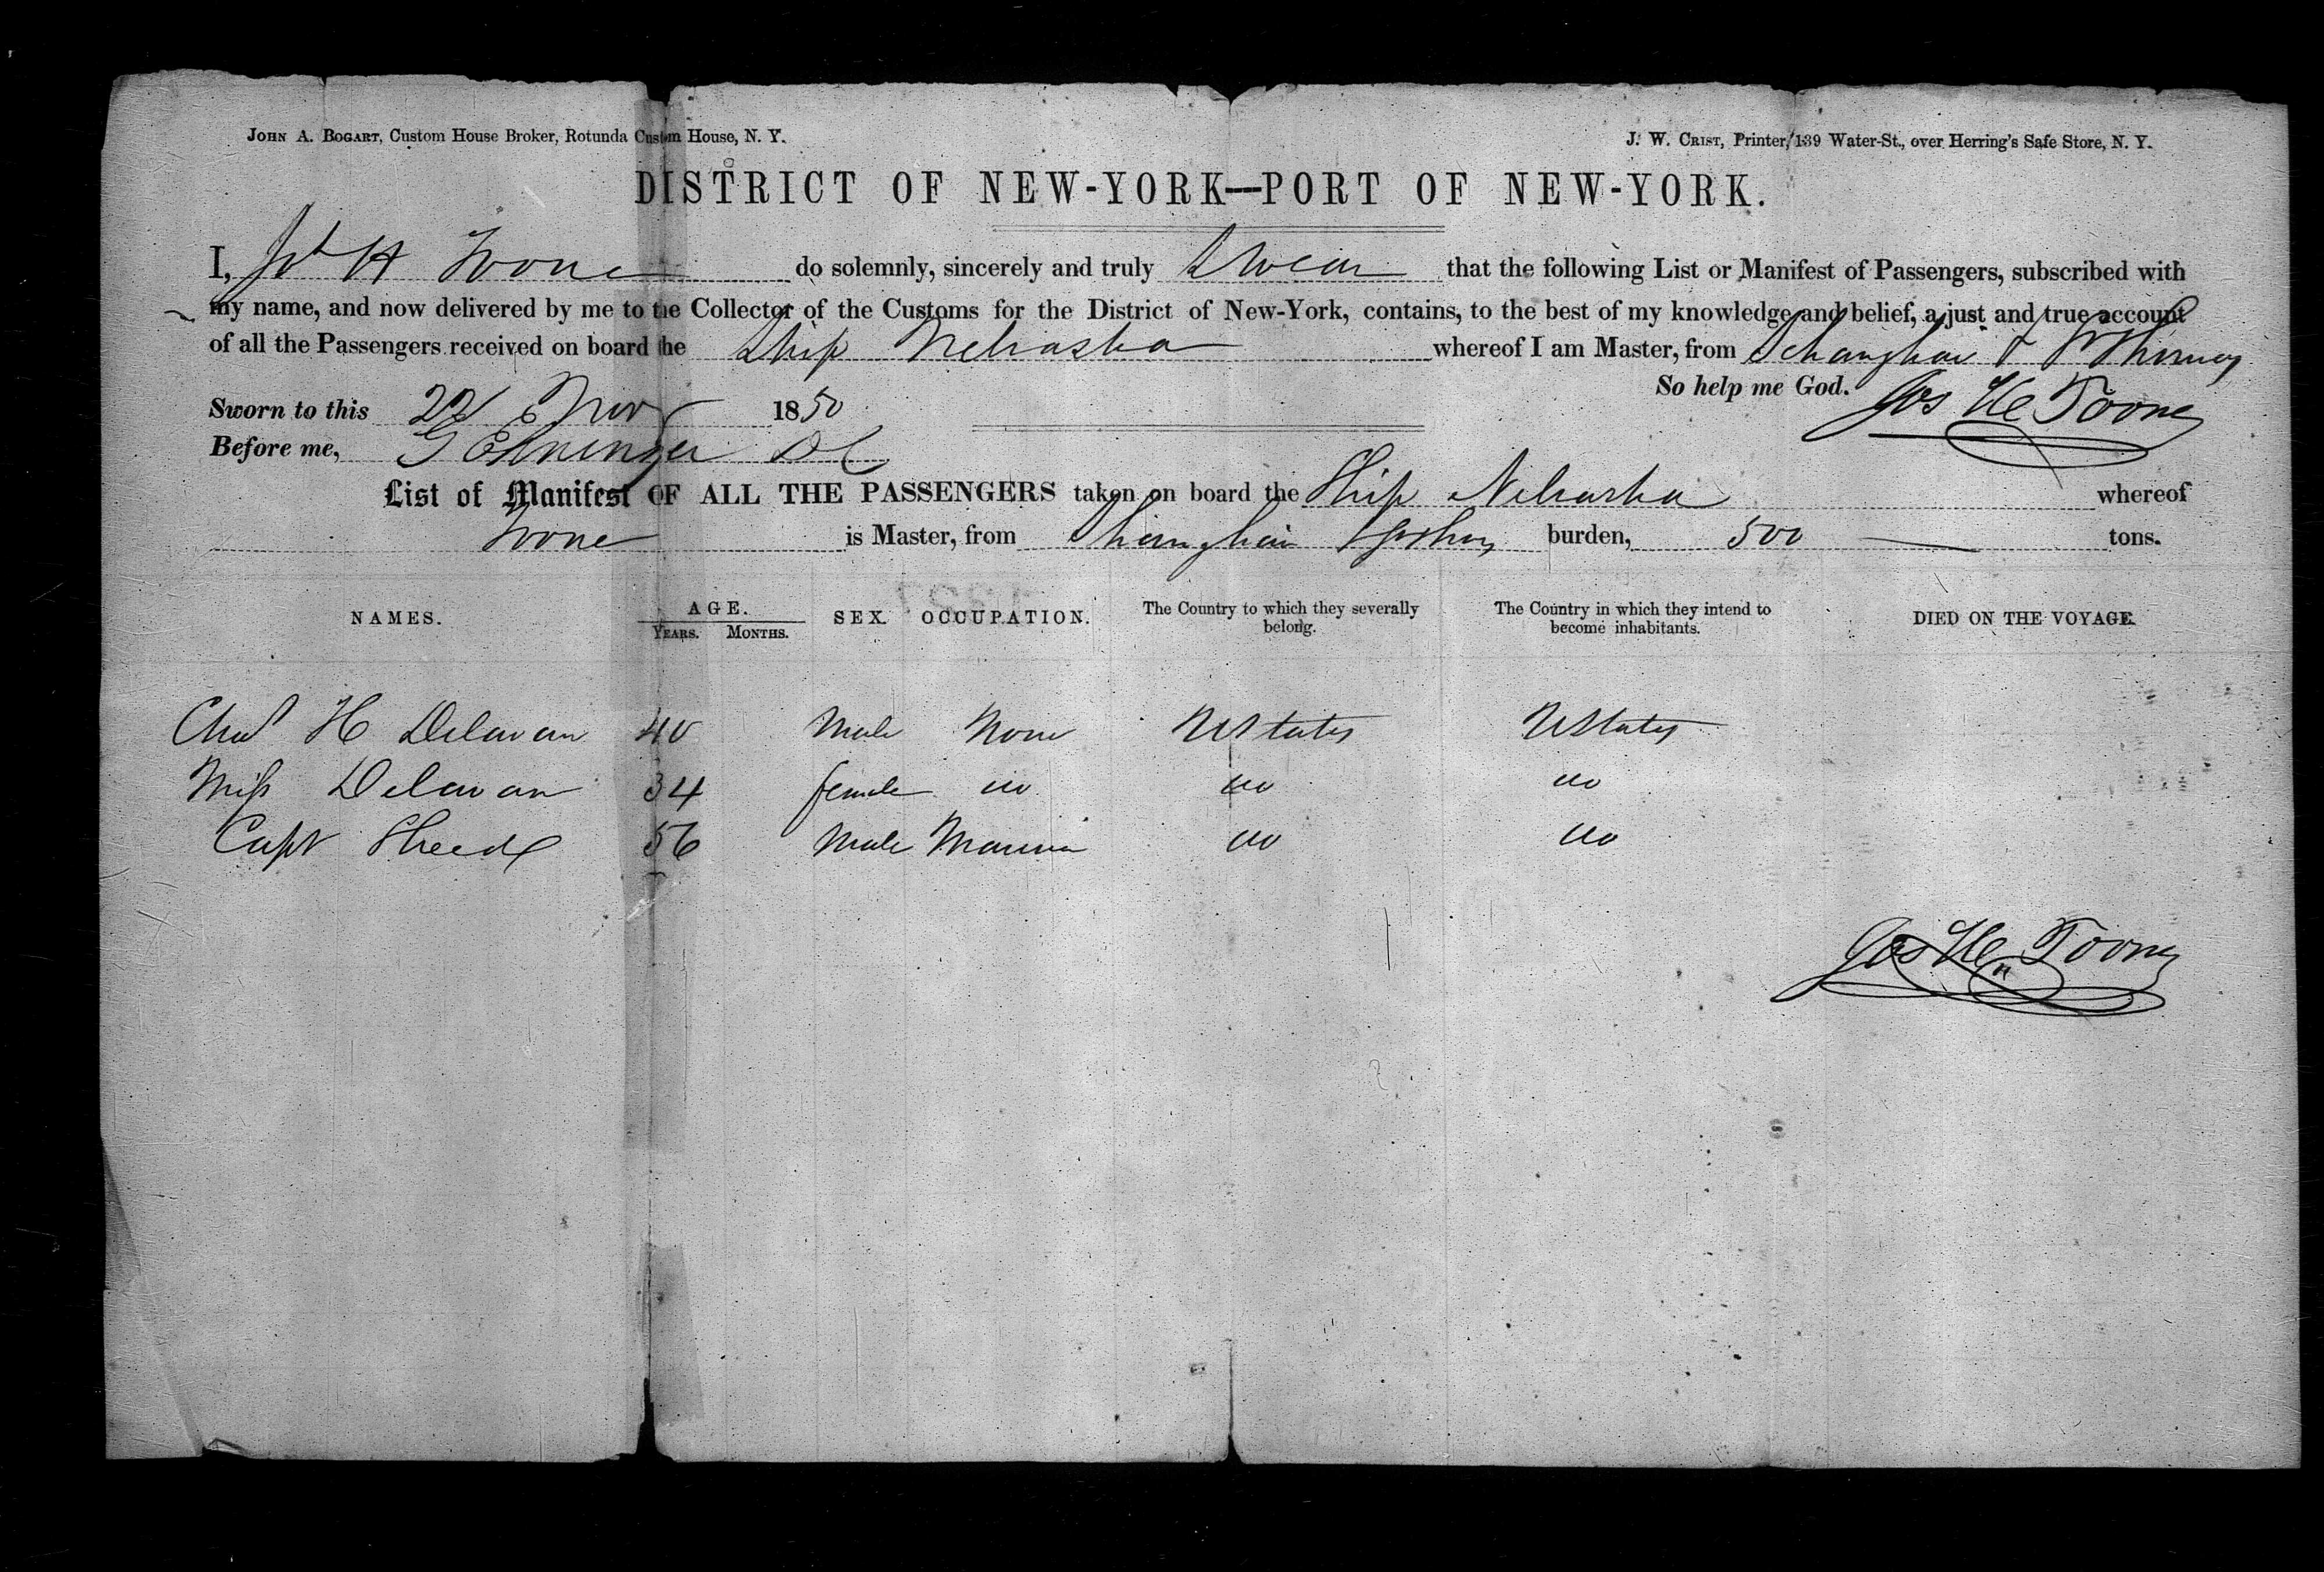 JOHN A. BOGART, Custom House Broker, Rotunda Custom House, N. Y.
J. W. CRIST, Printer, 139 Water-St., over Herring's Safe Store, N. Y.
DISTRICT OF NEW-YORK—PORT OF NEW-YORK.
I, Jos H Toone do solemnly, sincerely and truly Swear that the following List or Manifest of Passengers, subscribed with
my name, and now delivered by me to the Collector of the Customs for the District of New-York, contains, to the best of my knowledge and belief, a just and true account
of all the Passengers received on board the Ship Nebraska whereof I am Master, from Schanghai &
So help me God. Jos He Toone
Sworn to this 22 Nov 1850
Before me,
List of Manifest OF ALL THE PASSENGERS taken on board the Ship Nebraska whereof
Toone is Master, from Shanghai burden, 500 tons.
NAMES. AGE. YEARS. MONTHS. SEX OCCUPATION. The Country to which they severally belong. The Country in which they intend to become inhabitants. DIED ON THE VOYAGE.
Chas H Delavan 40 Male None UStates UStates
Miss Delavan 34 female do do do
Capt 56 Male Mariner do do
Jos Hen Toone